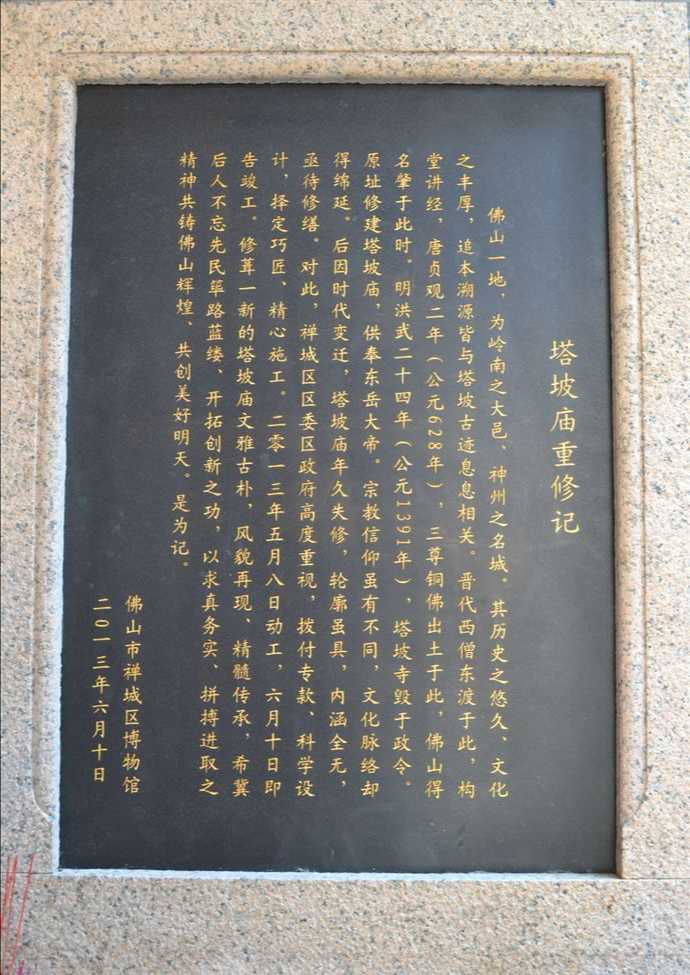 塔坡庙重修记
佛山一地，为岭南之大邑、神州之名城。其历史之悠久、文化
之丰厚，追本溯源皆与塔坡古迹息息相关。晋代西僧东渡于此，构
堂讲经，唐贞观二年（公元628年），三尊铜佛出土于此，佛山得
名肇于此时。明洪武二十四年（公元1391年），塔坡寺毁于政令。
原址修建塔坡庙，供奉东岳大帝。宗教信仰虽有不同，文化脉络却
得绵延。后因时代变迁，塔坡庙年久失修，轮廓虽具，内涵全无，
亟待修缮。对此，禅城区区委区政府高度重视，拨付专款、科学设
计，择定巧匠、精心施工。二零一三年五月八日动工，六月十日即
告竣工。修葺一新的塔坡庙文雅古朴，风貌再现、精髓传承，希冀
后人不忘先民筚路蓝缕、开拓创新之功，以求真务实、拼搏进取之
精神共铸佛山辉煌、共创美好明天。是为记。
佛山市禅城区博物馆
二〇一三年六月十日